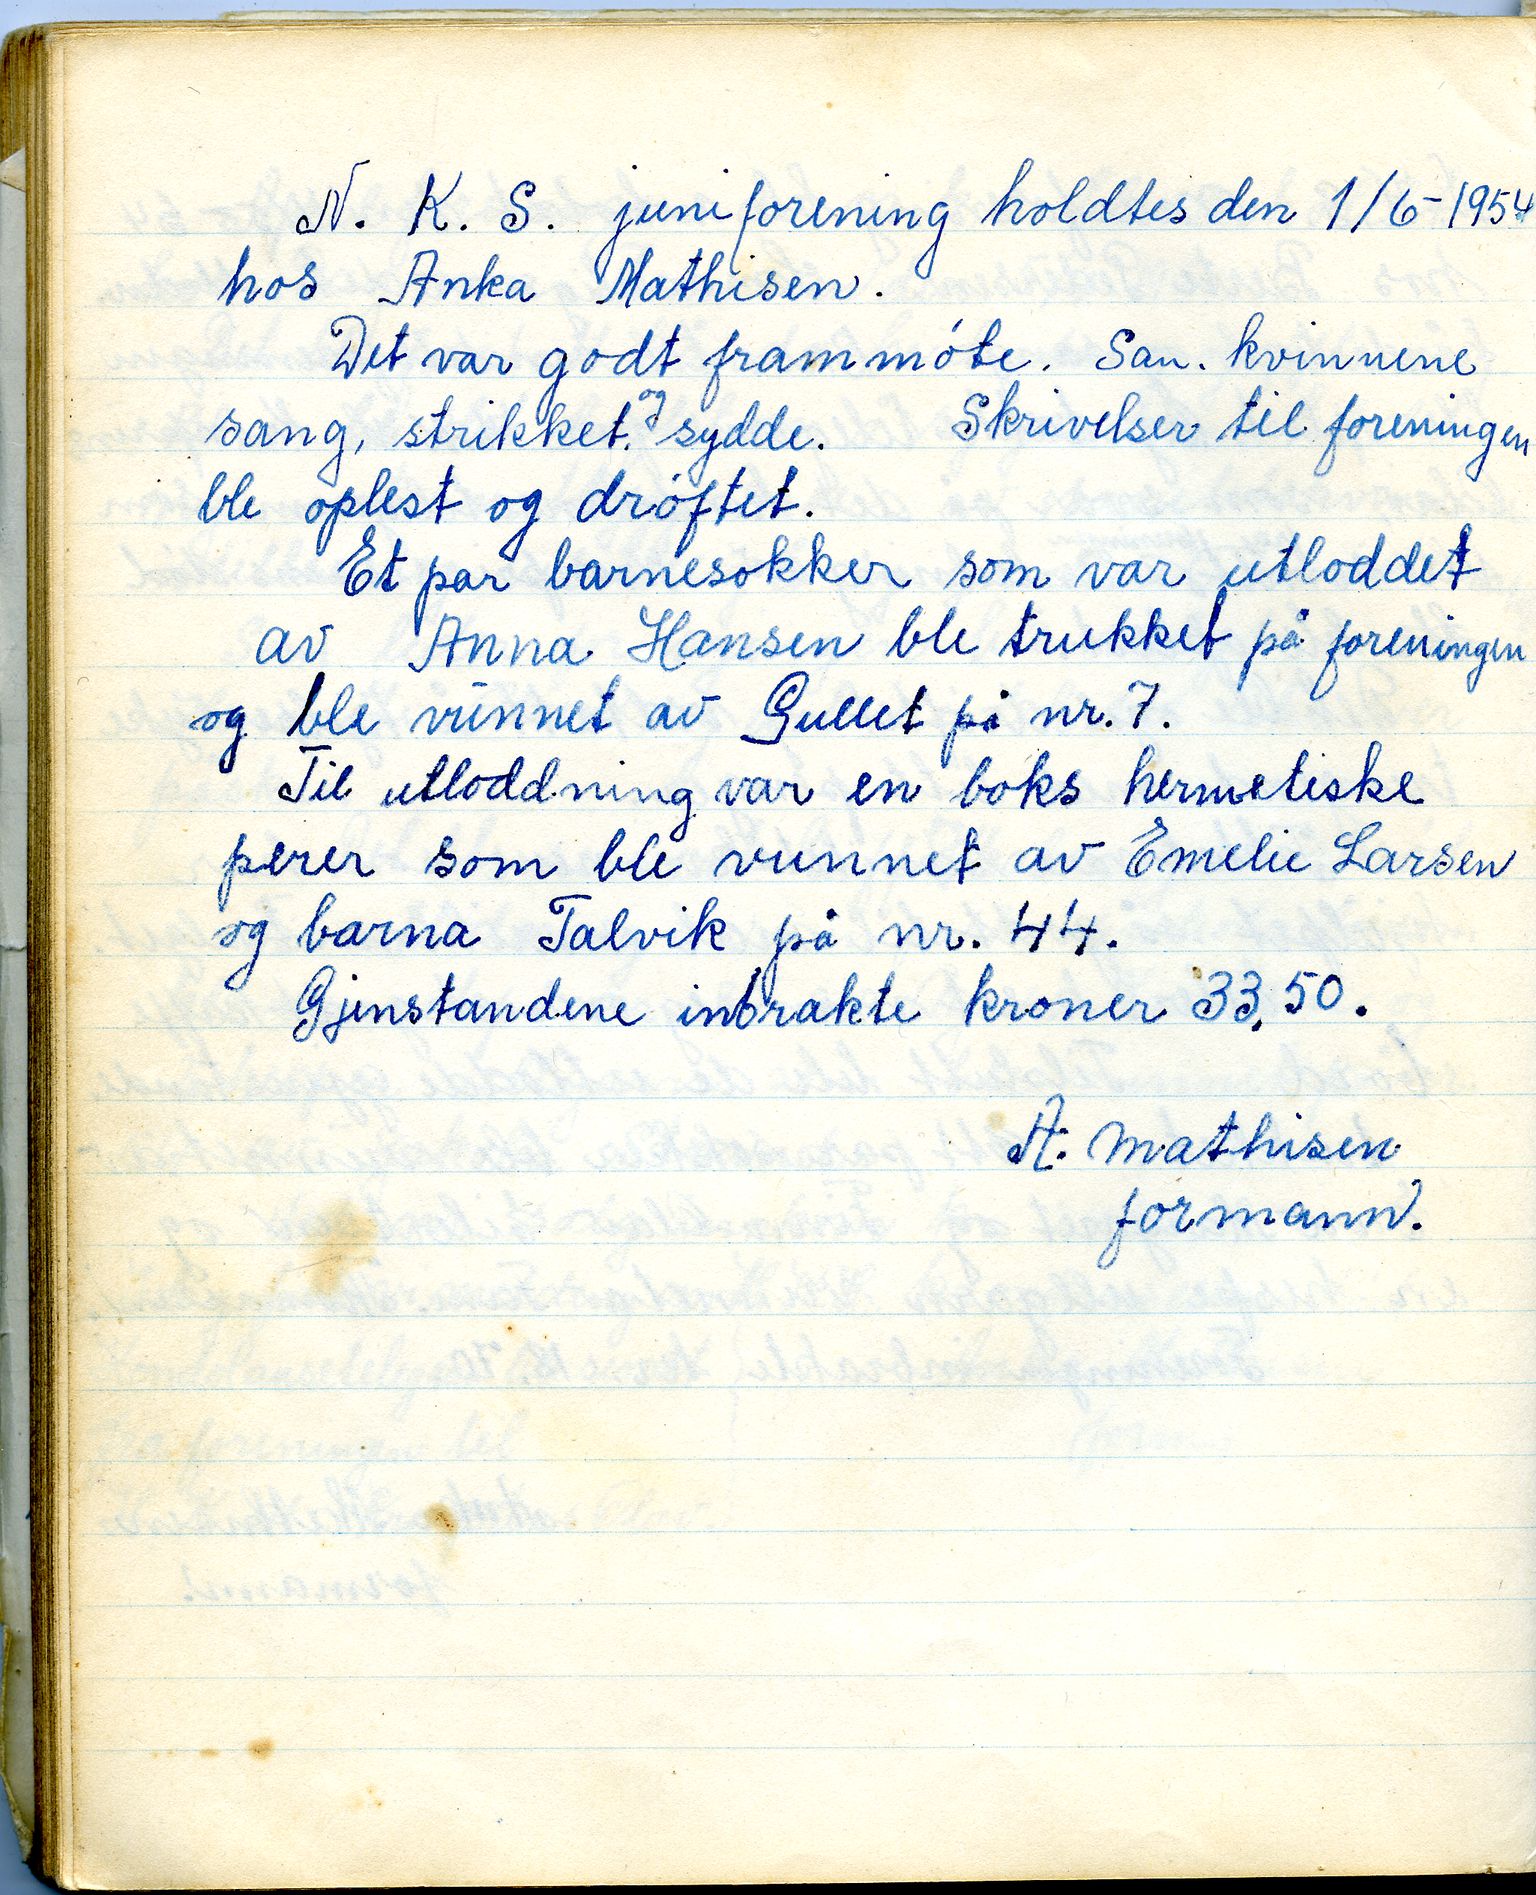 N. K. S. juniforening holdtes den 1/6-1954
hos Anka Mathisen.
Det var godt frammóte. San. kvinnene
sang, strikket. og sydde. Skrivelser til foreningen
ble oplest og dróftet.
Et par barnesokker som var utloddet
av Anna Hansen ble trukket på foreningen
og ble vunnet av Gullet på nr. 7.
Til utloddning var en boks hermetiske
perer som ble vunnet av Emelie Larsen
og barna Talvik på nr. 44.
Gjenstandene inbrakte kroner 33,50.
A. Mathisen
formann.